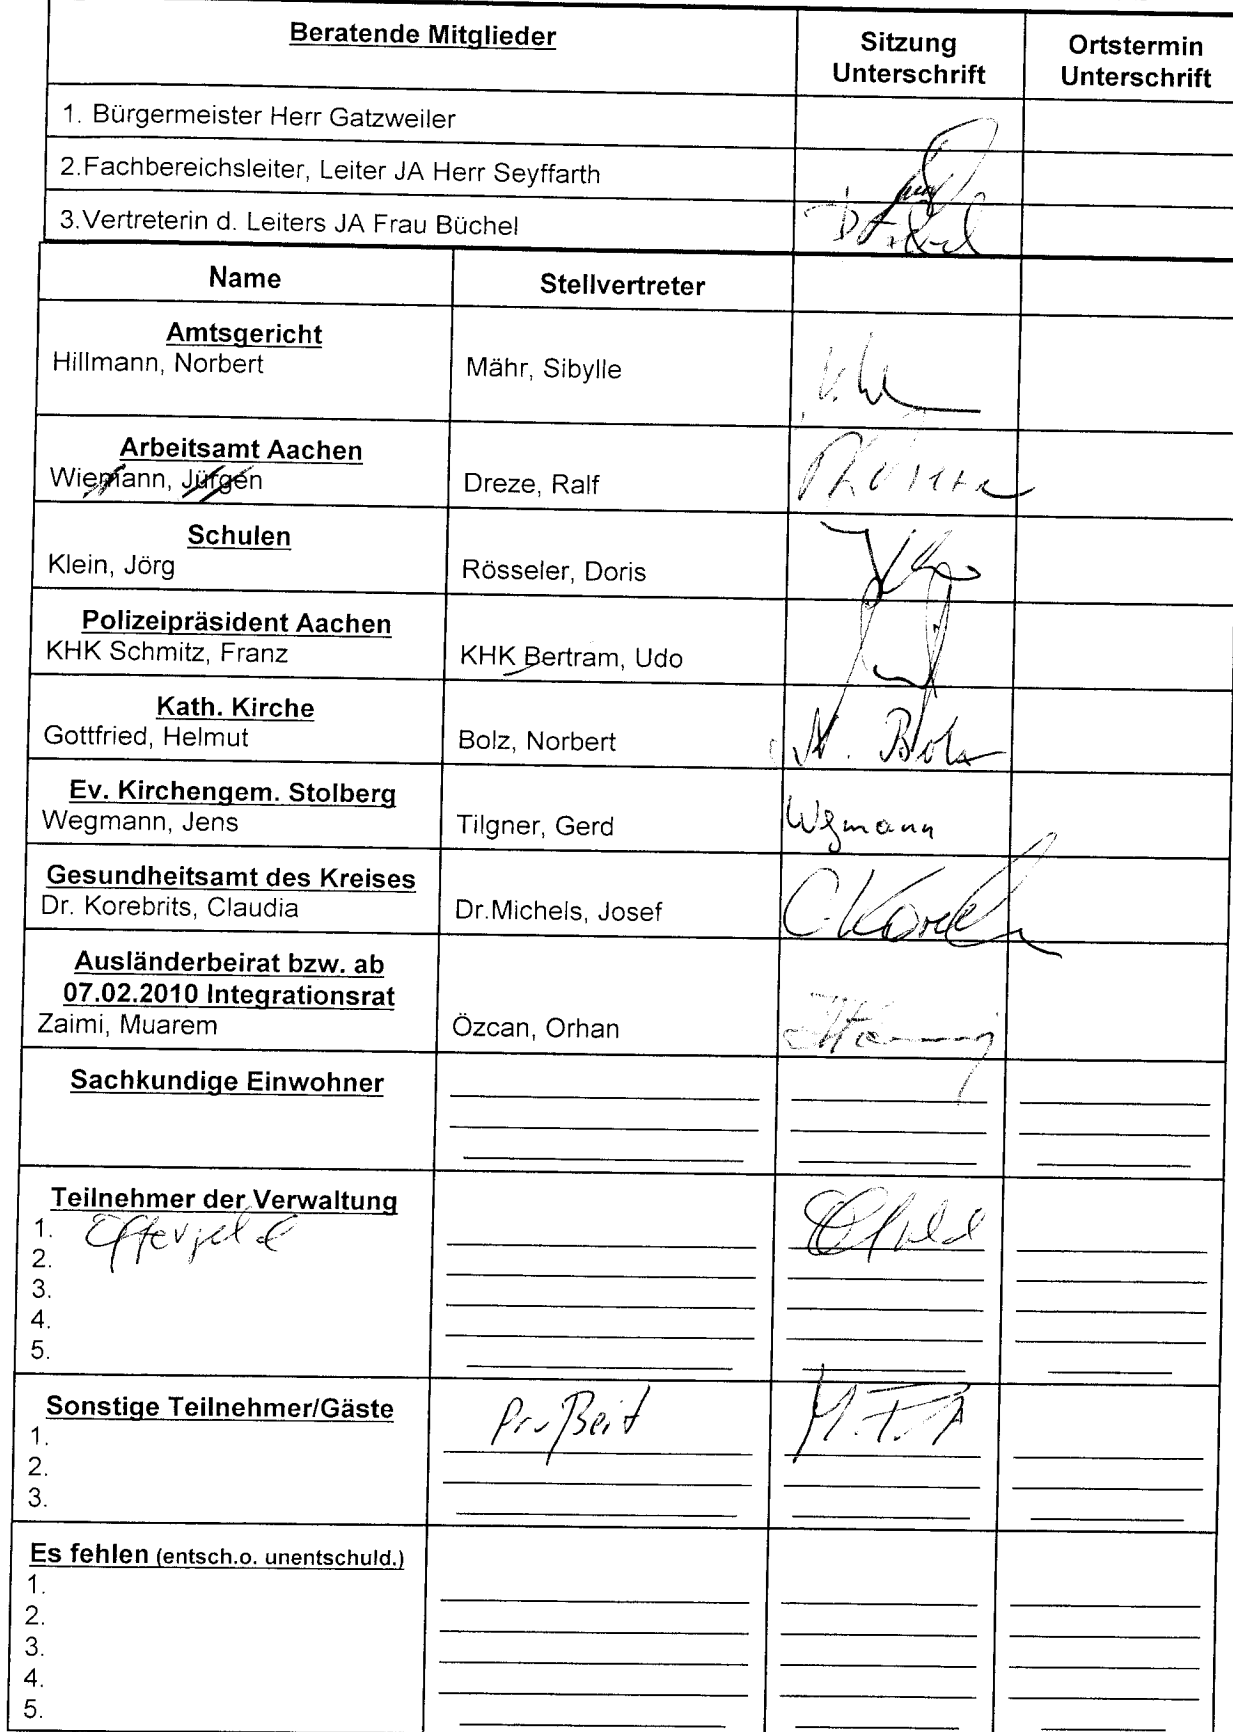 Beratende Mitglieder
Sitzung Unterschrift
Ortstermin Unterschrift
1. Bürgermeister Herr Gatzweiler
2.Fachbereichsleiter, Leiter JA Herr Seyffarth
3.Vertreterin d. Leiters JA Frau Büchel
Name
Stellvertreter
Amtsgericht
Hillmann, Norbert
Mähr, Sibylle
Arbeitsamt Aachen
Wiemann, Jürgen
Dreze, Ralf
Schulen
Klein, Jörg
Rösseler, Doris
Polizeipräsident Aachen
KHK Schmitz, Franz
KHK Bertram, Udo
Kath. Kirche
Gottfried, Helmut
Bolz, Norbert
N. Bolz
Ev. Kirchengem. Stolberg
Wegmann, Jens
Tilgner, Gerd
Wegmann
Gesundheitsamt des Kreises
Dr. Korebrits, Claudia
Dr.Michels, Josef
Ausländerbeirat bzw. ab
07.02.2010 Integrationsrat
Zaimi, Muarem
Özcan, Orhan
Sachkundige Einwohner
Teilnehmer der Verwaltung
1. Offergeld
2.
3.
4.
5.
Sonstige Teilnehmer/Gäste
1.
2.
3.
Es fehlen (entsch.o. unentschuld.)
1.
2.
3.
4.
5.